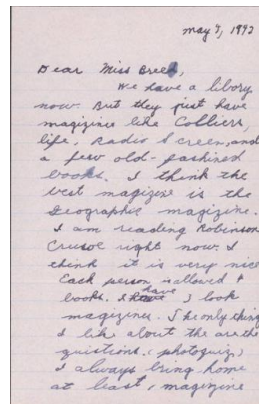 may 7, 1942
Dear Miss Breed,
We have a libory
now. But they just have
magizines like Colliers,
life, Radio Screen, and
a few old-pashined
books. I think the
best magizine is the
Geographic magizine.
I am reading Robinson
Crusoe right now. I
think it is very nice
Each person is allowed
books. I have I look
magizines. The only thing
I like about the are the
quistions, (photoquiz)
I always bring home
at least, magizine